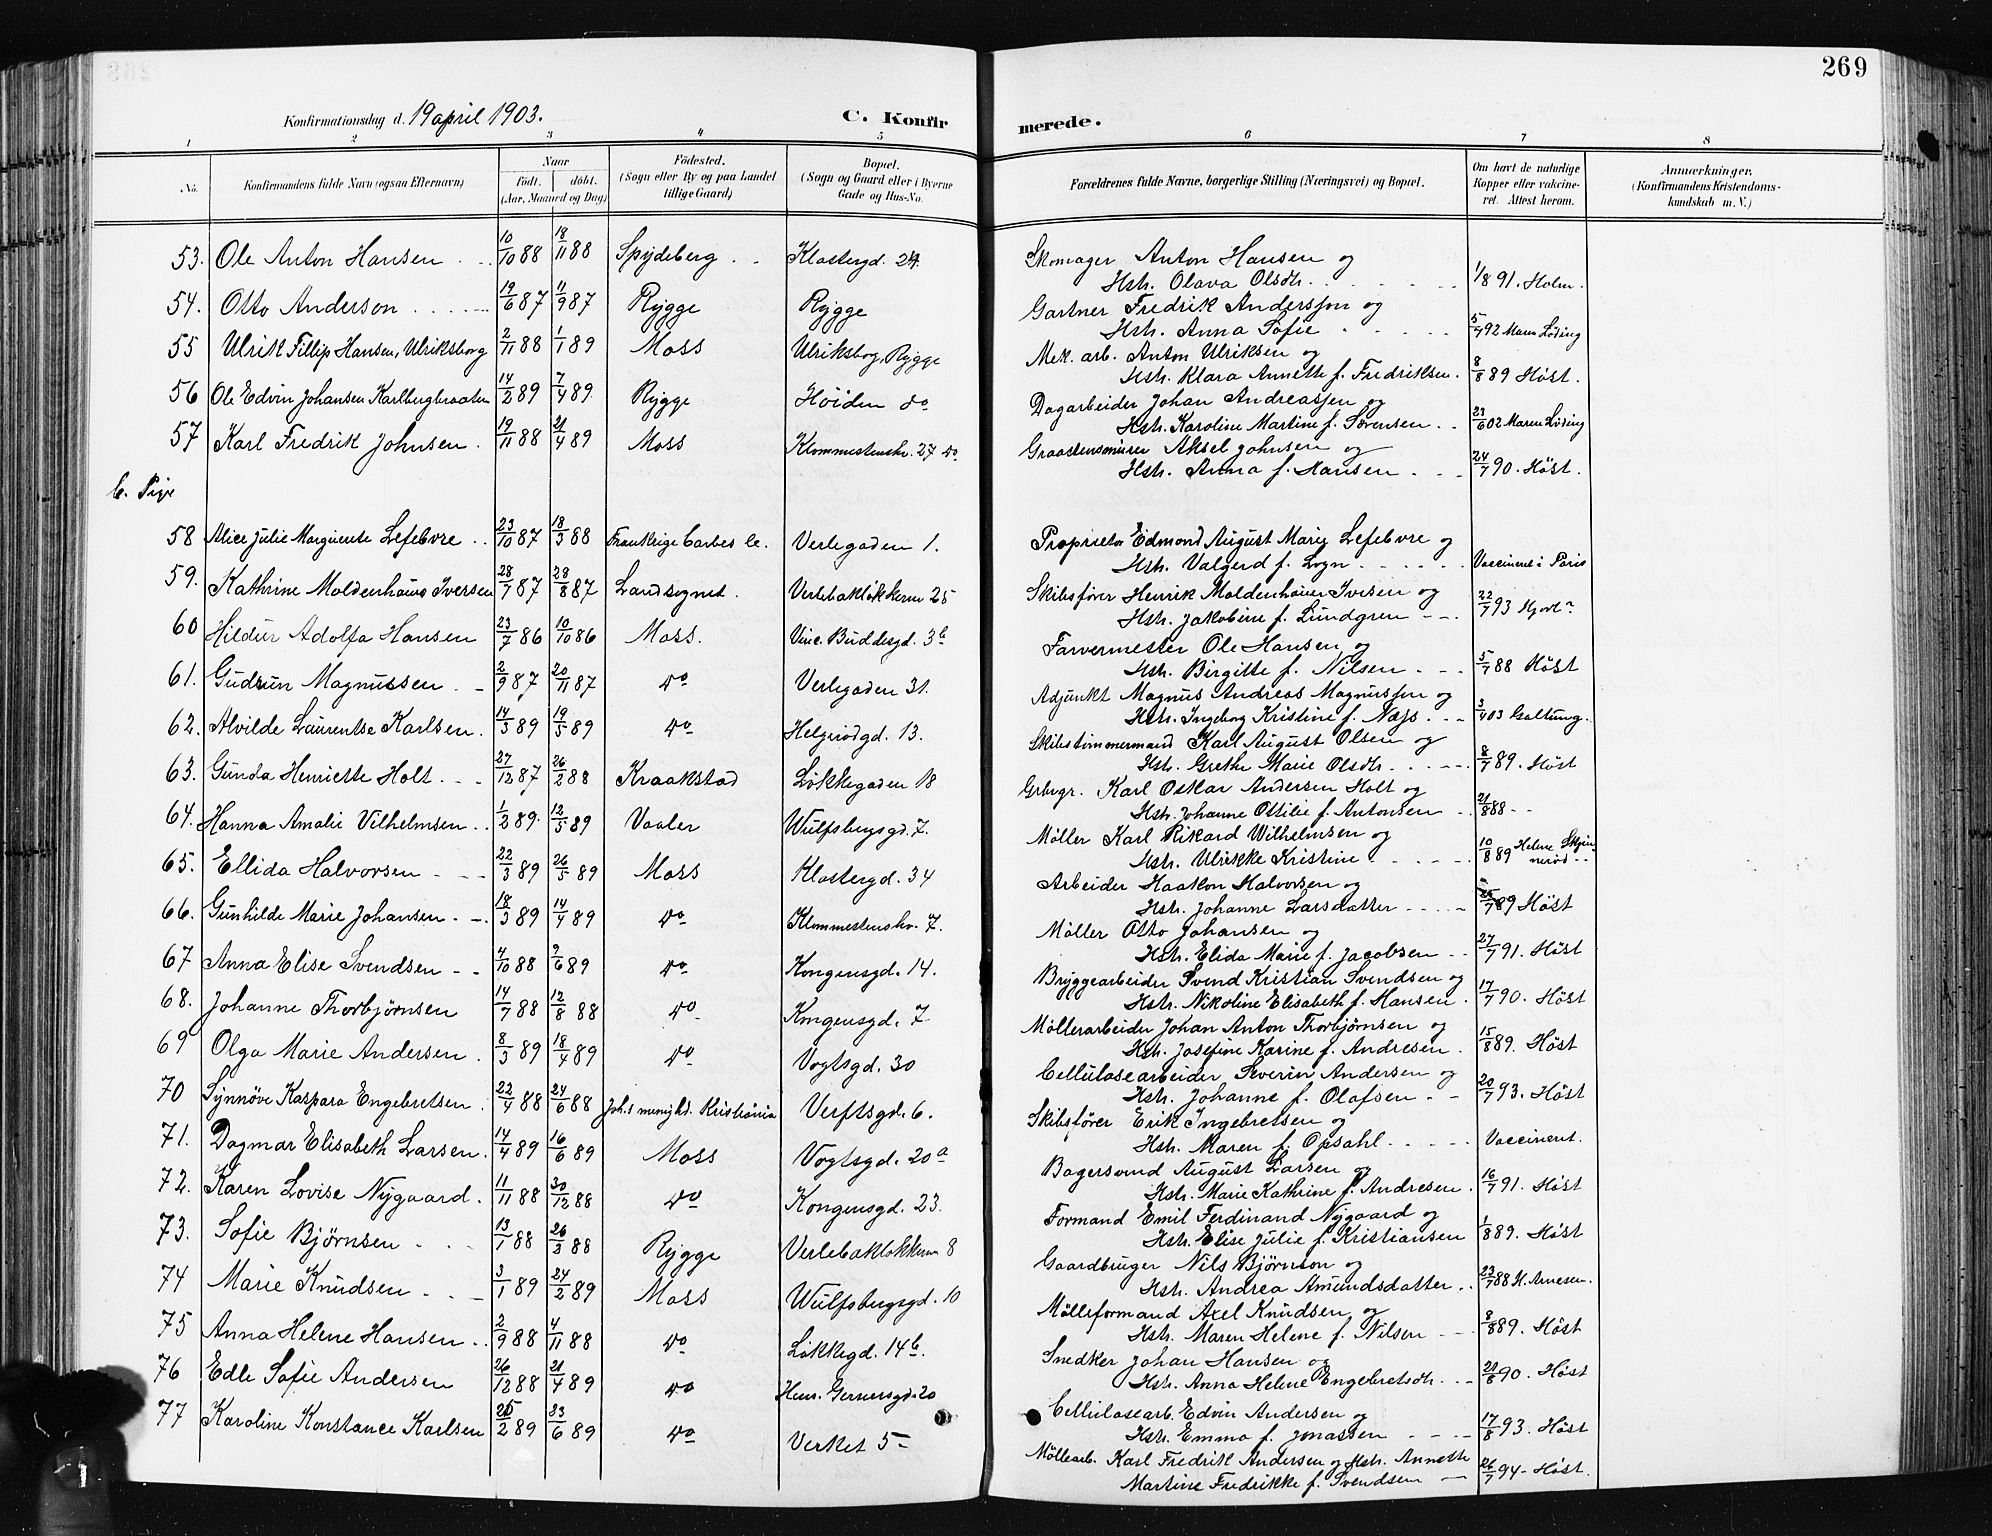 269
Konfirmationsdag d. 19 april 1903.
C. Konfirmerede.
1 2 3 4 5 6 7 8
No.
Konfirmandens fulde Navn (ogsaa Efternavn)
Naar
født. døbt.
(Aar, Maaned og Dag)
Fødested.
(Sogn eller By og paa Landet
tillige Gaard)
Bopæl.
(Sogn og Gaard eller i Byerne
Gade og Hus-No.
Forældrenes fulde Navne, borgerlige Stilling (Næringsvei) og Bopæl.
Om havt de naturlige
Kopper eller vakcine-
ret. Attest herom.
Anmærkninger.
(Konfirmandens Kristendoms-
kundskab m. V.)
53. Ole Anton Hansen 10/10 88 18/11 88 Spydeberg Klostergd. 24. Skomager Anton Hansen og
Hstr. Olava Olsdtr. 1/8 91. Holm.
54. Otto Anderson 19/6 87 11/9 87 Rygge Rygge Gartner Fredrik Andersson og
Hstr. Anna Sofie 5/7 92 Maren Løding
55 Ulrik Fillip Hansen, Ulriksborg 2/11 88 1/1 89 Moss Ulriksbog, Rygge Mek. arb. Anton Ulriksen og
Hstr. Klara Annette f. Fredriksen. 8/8 89 Høst.
56 Ole Edvin Johansen Karlbergbraaten 14/2 89 7/4 89 Rygge Høiden do Dagarbeider Johan Andreassen og
Hstr. Karoline Martine f. Sørensen 23/6 02 Maren Løding
57 Karl Fredrik Johnsen 19/11 88 21/4 89 Moss Klommestenskr. 27 do Graastensmurer Aksel Johnsen og
Hstr. Anna f. Hansen 24/7 90. Høst.
b. Pige
58 Alice Julie Marguerite Lefebvre 23/10 87 18/3 88 Frankrige Carbes le. Verlegaden 1. Proprietær Edmond August Marie Lefebvre og
Hstr. Valgerd f. Vogn Vaccineret i Paris
59. Kathrine Moldenhauer Iversen 28/7 87 28/8 87 Landsognet. Verlebakløkkerne 25 Skibsfører Henrik Moldenhauer Iversen og
Hstr. Jakobine f. Lundgren 22/7 93 Hjort
60 Hildur Adolfa Hansen 23/7 86 10/10 86 Moss. Vinc. Buddesgd. 3b Farvermester Ole Hansen og
Hstr. Birgitte f. Nilsen 5/7 88 Høst
61. Gudrun Magnussen 2/9 87 20/11 87 do Verlegaden 31. Adjunkt Magnus Andreas Magnussen og
Hstr. Ingeborg Kristine f. Næss 3/4 03 Galtung.
62. Alvilde Laurentse Karlsen 14/3 89 19/5 89 do Helgerødgd. 13. Skibstømmermand Karl August Olsen og
Hstr. Grethe Marie Olsdtr. 8/7 89. Høst
63. Gunda Henriette Holt 27/12 87 26/2 88 Kraakstad Løkkegaden 18 Grbrgr. Karl Oskar Andersen Holt og
Hstr. Johanne Ottilie f. Antonsen 21/8 88 - -
64. Hanna Amalie Vilhelmsen 1/2 89. 12/5 89 Vaaler Wulfsbergsgd. 7. Møller Karl Rikard Wilhelmsen og
Hstr. Ulrikke Kristine 10/8 89 Helene Skjinnerød
65. Ellida Halvorsen 22/3 89 26/5 89 Moss Klostergd. 34 Arbeider Haakon Halvorsen og
Hstr. Johanne Larsdatter /7 89 Høst
66. Gunhilde Marie Johansen 18/3 89 14/4 89 do Klommestenskr. 7. Møller Otto Johansen og
Hstr. Elida Marie f. Jacobsen 27/7 91. Høst
67 Anna Elise Svendsen 4/10 88 9/6 89 do Kongensgd. 14. Bryggearbeider Svend Kristian Svendsen og
Hstr. Nikoline Elisabeth f. Hansen 17/7 90. Høst
68. Johanne Thorbjørnsen 14/7 88 12/8 88 do Kongensgd. 7. Møllerarbeider Johan Anton Thorbjørnsen og
Hstr. Josefine Karine f. Andresen 15/8 89. Høst
69 Olga Marie Andersen 8/3 89 18/4 89 do Vogtsgd. 30 Cellulosearbeider Severin Andersen og
Hstr. Johanne f. Olafsen 20/7 93. Høst
70 Synnøve Kaspara Engebretsen 22/4 88 24/6 88 Joh.s menighd. Kristiania Verftsgd. 6. Skibsfører Erik Ingebretsen og
Hstr. Maren f. Opsahl Vaccineret.
71. Dagmar Elisabeth Larsen. 14/4 89 16/6 89 Moss Vogtsgd. 20a Bagersvend August Larsen og
Hstr. Marie Kathrine f. Andresen. 16/7 91. Høst
72. Karen Lovise Nygaard. 11/11 88 30/12 88 do Kongensgd. 23. Formand Emil Ferdinand Nygaard og
Hstr. Elise Julie f. Kristiansen 1/8 89. Høst
73. Sofie Bjørnsen 13/1 88 26/3 88 Rygge Verlebakløkkerne 8 Gaardbruger Nils Bjørnson og
Hstr. Andrea Amundsdatter 23/7 88 H. Arnesen.
74 Marie Knudsen 3/1 89 24/2 89 Moss Wulfsbergsgd. 10 Mølleformand Axel Knudsen og
Hstr. Maren Helene f. Nilsen 8/8 89. Høst
75 Anna Helene Hansen 2/9 88 4/11 88 do Løkkegd. 14b. Snedker Johan Hansen og
Hstr. Anna Helene Engebretsdtr. 21/8 90. Høst
76 Edle Sofie Andersen 26/12 88 21/4 89 do Henr. Gernersgd. 20 Cellulosearb. Edvin Andersen og
Hstr. Emma f. Jonassen 17/8 93. Høst
77 Karoline Konstance Karlsen 25/2 89 23/6 89 do Verket 5 - Møllearb. Karl Fredrik Andersen og Hstr. Annette
Martine Fredrikke f. Svendsen 26/7 94 - Høst.